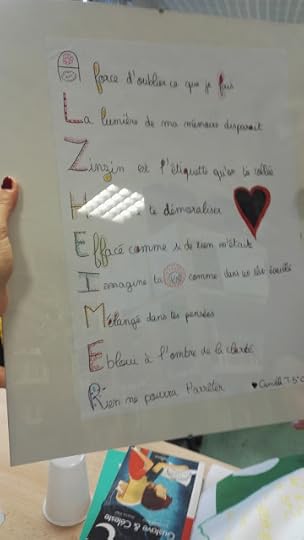 A force d'oublier ce que je fais
La lumière de ma mémoire disparait
Zinzin est l'étiquette qu'on t'a collée
H te démoraliser
Effacé comme si de rien n'était
Imagine ta comme dans un rêve éveillé
Mélangé dans tes pensées
Ebloui à l'ombre de la clarté
Rien ne pourra t'arrêter
Camille T 5°C
Gustave & Céleste